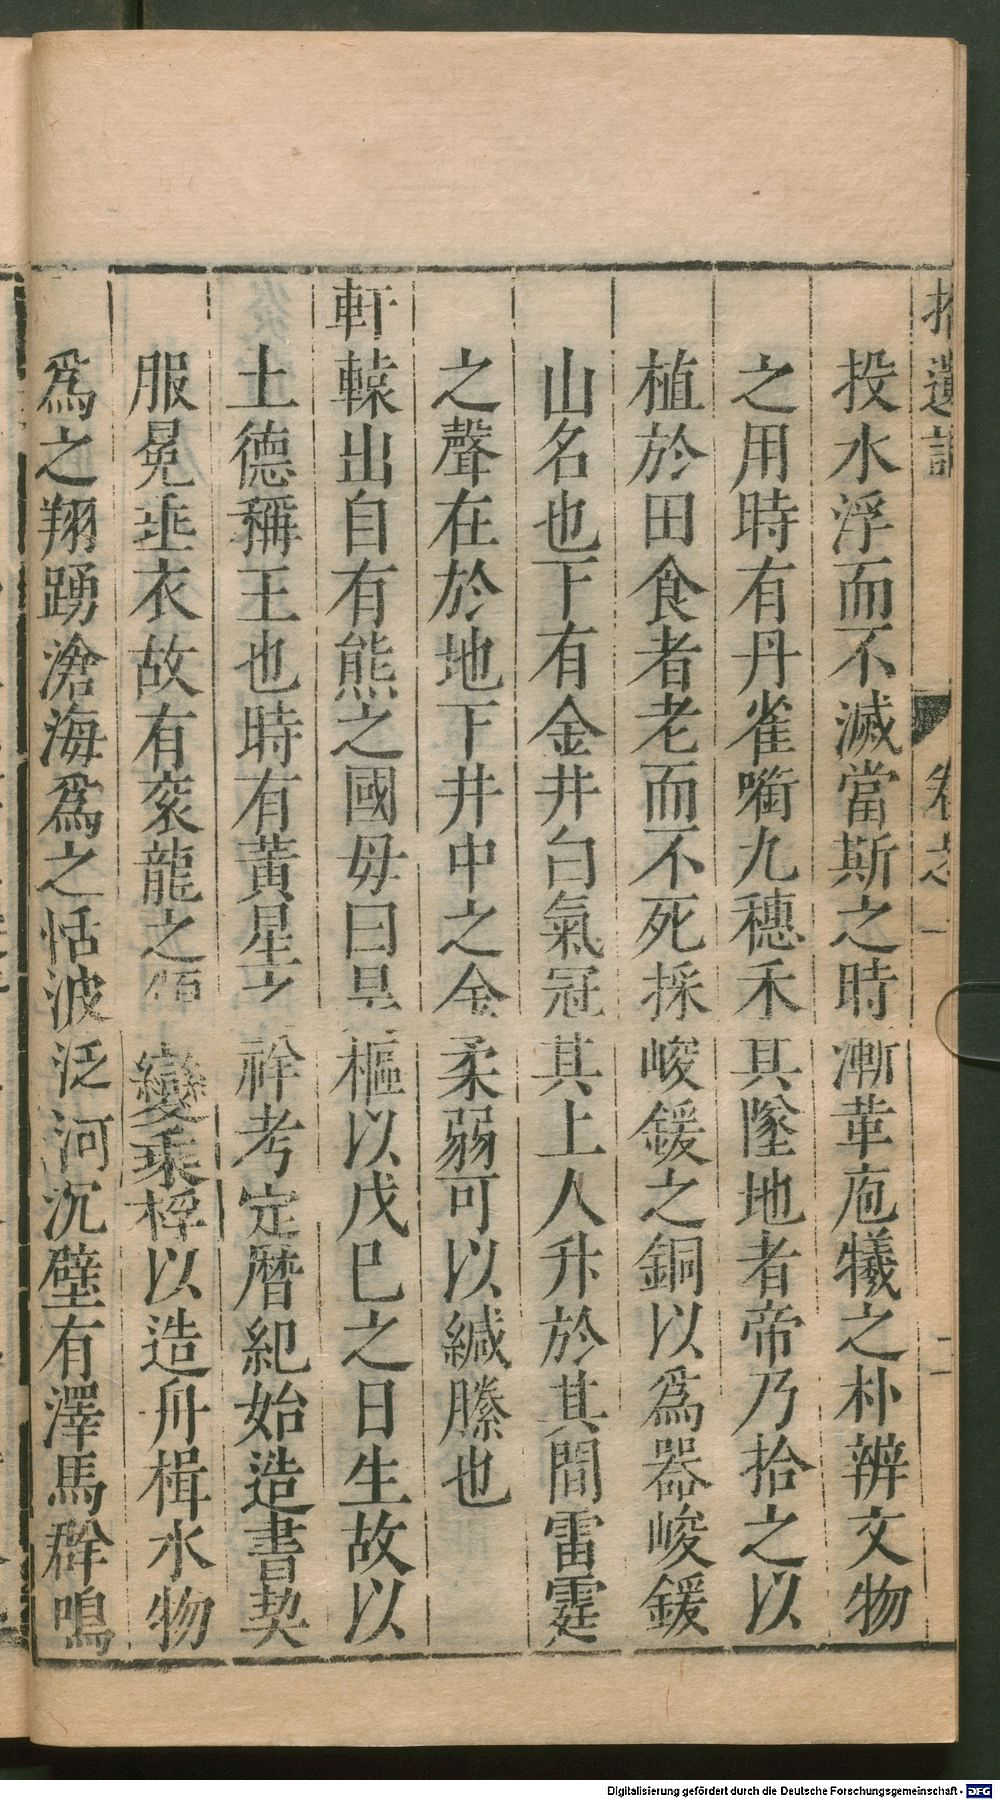 拾遺記 卷之一 二
投水浮而不滅當斯之時漸革庖犧之朴辨文物
之用時有丹雀㗸九穗禾其墜地者帝乃拾之以
植於田食者老而不死採峻鍰之銅以爲器峻鍰
山名也下有金井白氣冠其上人升於其間雷霆
之聲在於地下井中之金柔弱可以緘縢也
軒轅出自有熊之國毋曰昊樞以戊巳之日生故以
土德稱王也時有黃星之祥考定曆紀始造書契
服冕垂衣故有衮龍之頌變乘桴以造舟楫水物
爲之翔踴滄海爲之恬波泛河沉璧有澤馬群鳴
Digitalisierung gefördert durch die Deutsche Forschungsgemeinschaft - DFG